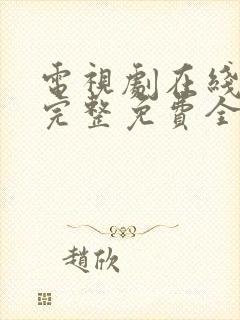 電視劇在綫
完整免費全
趙欣